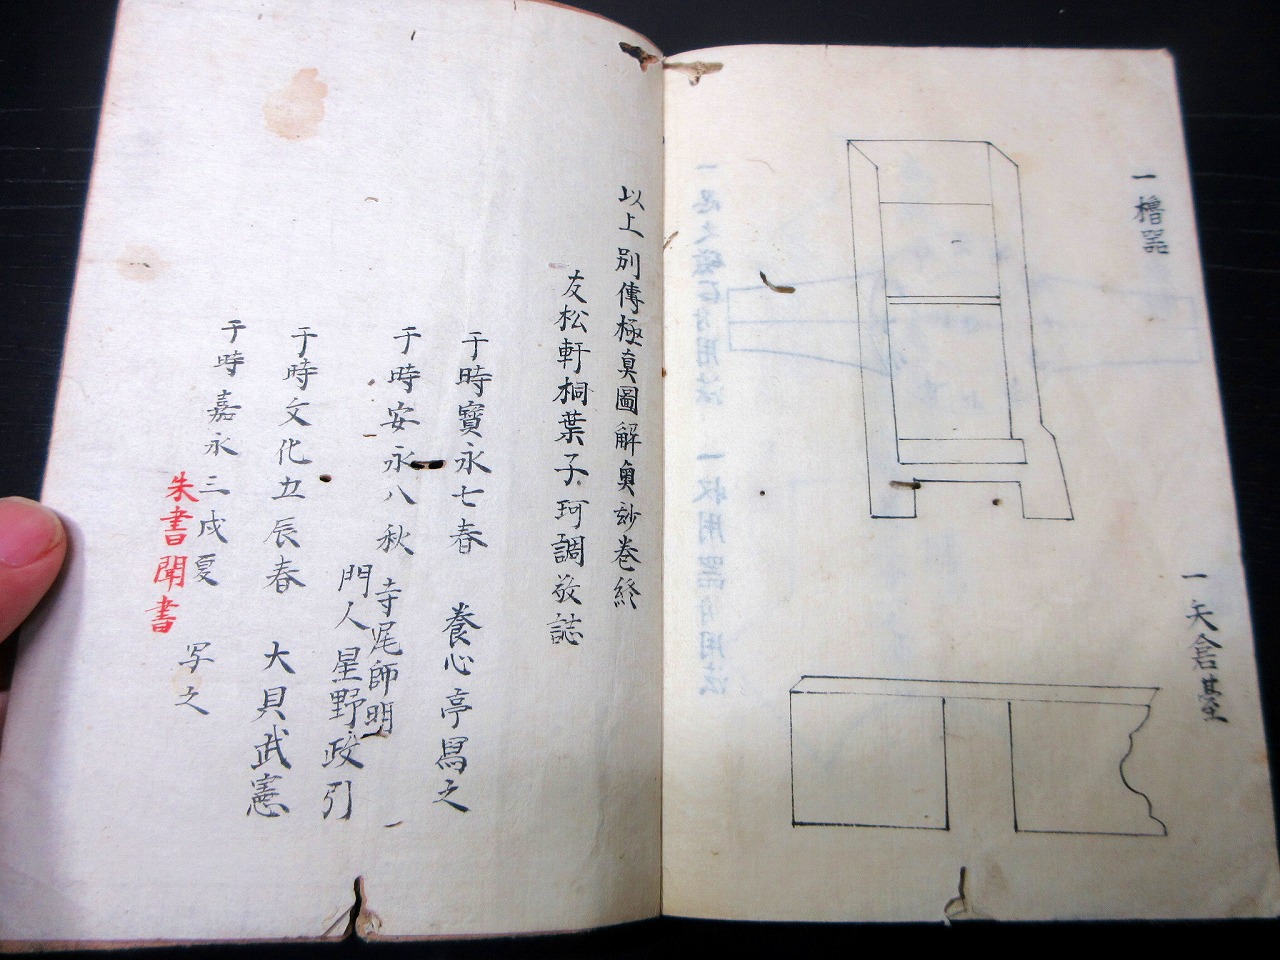 一櫓器
一矢倉基
以上別傳極真圖解奥玅巻終
友松軒桐葉子珂調敬誌
于時寶永七春 養心亭寫之
于時安永八秋 寺尾師明
門人星野政引
于時文化五辰春 大貝武憲
于時嘉永三戍夏 写之
朱書聞書